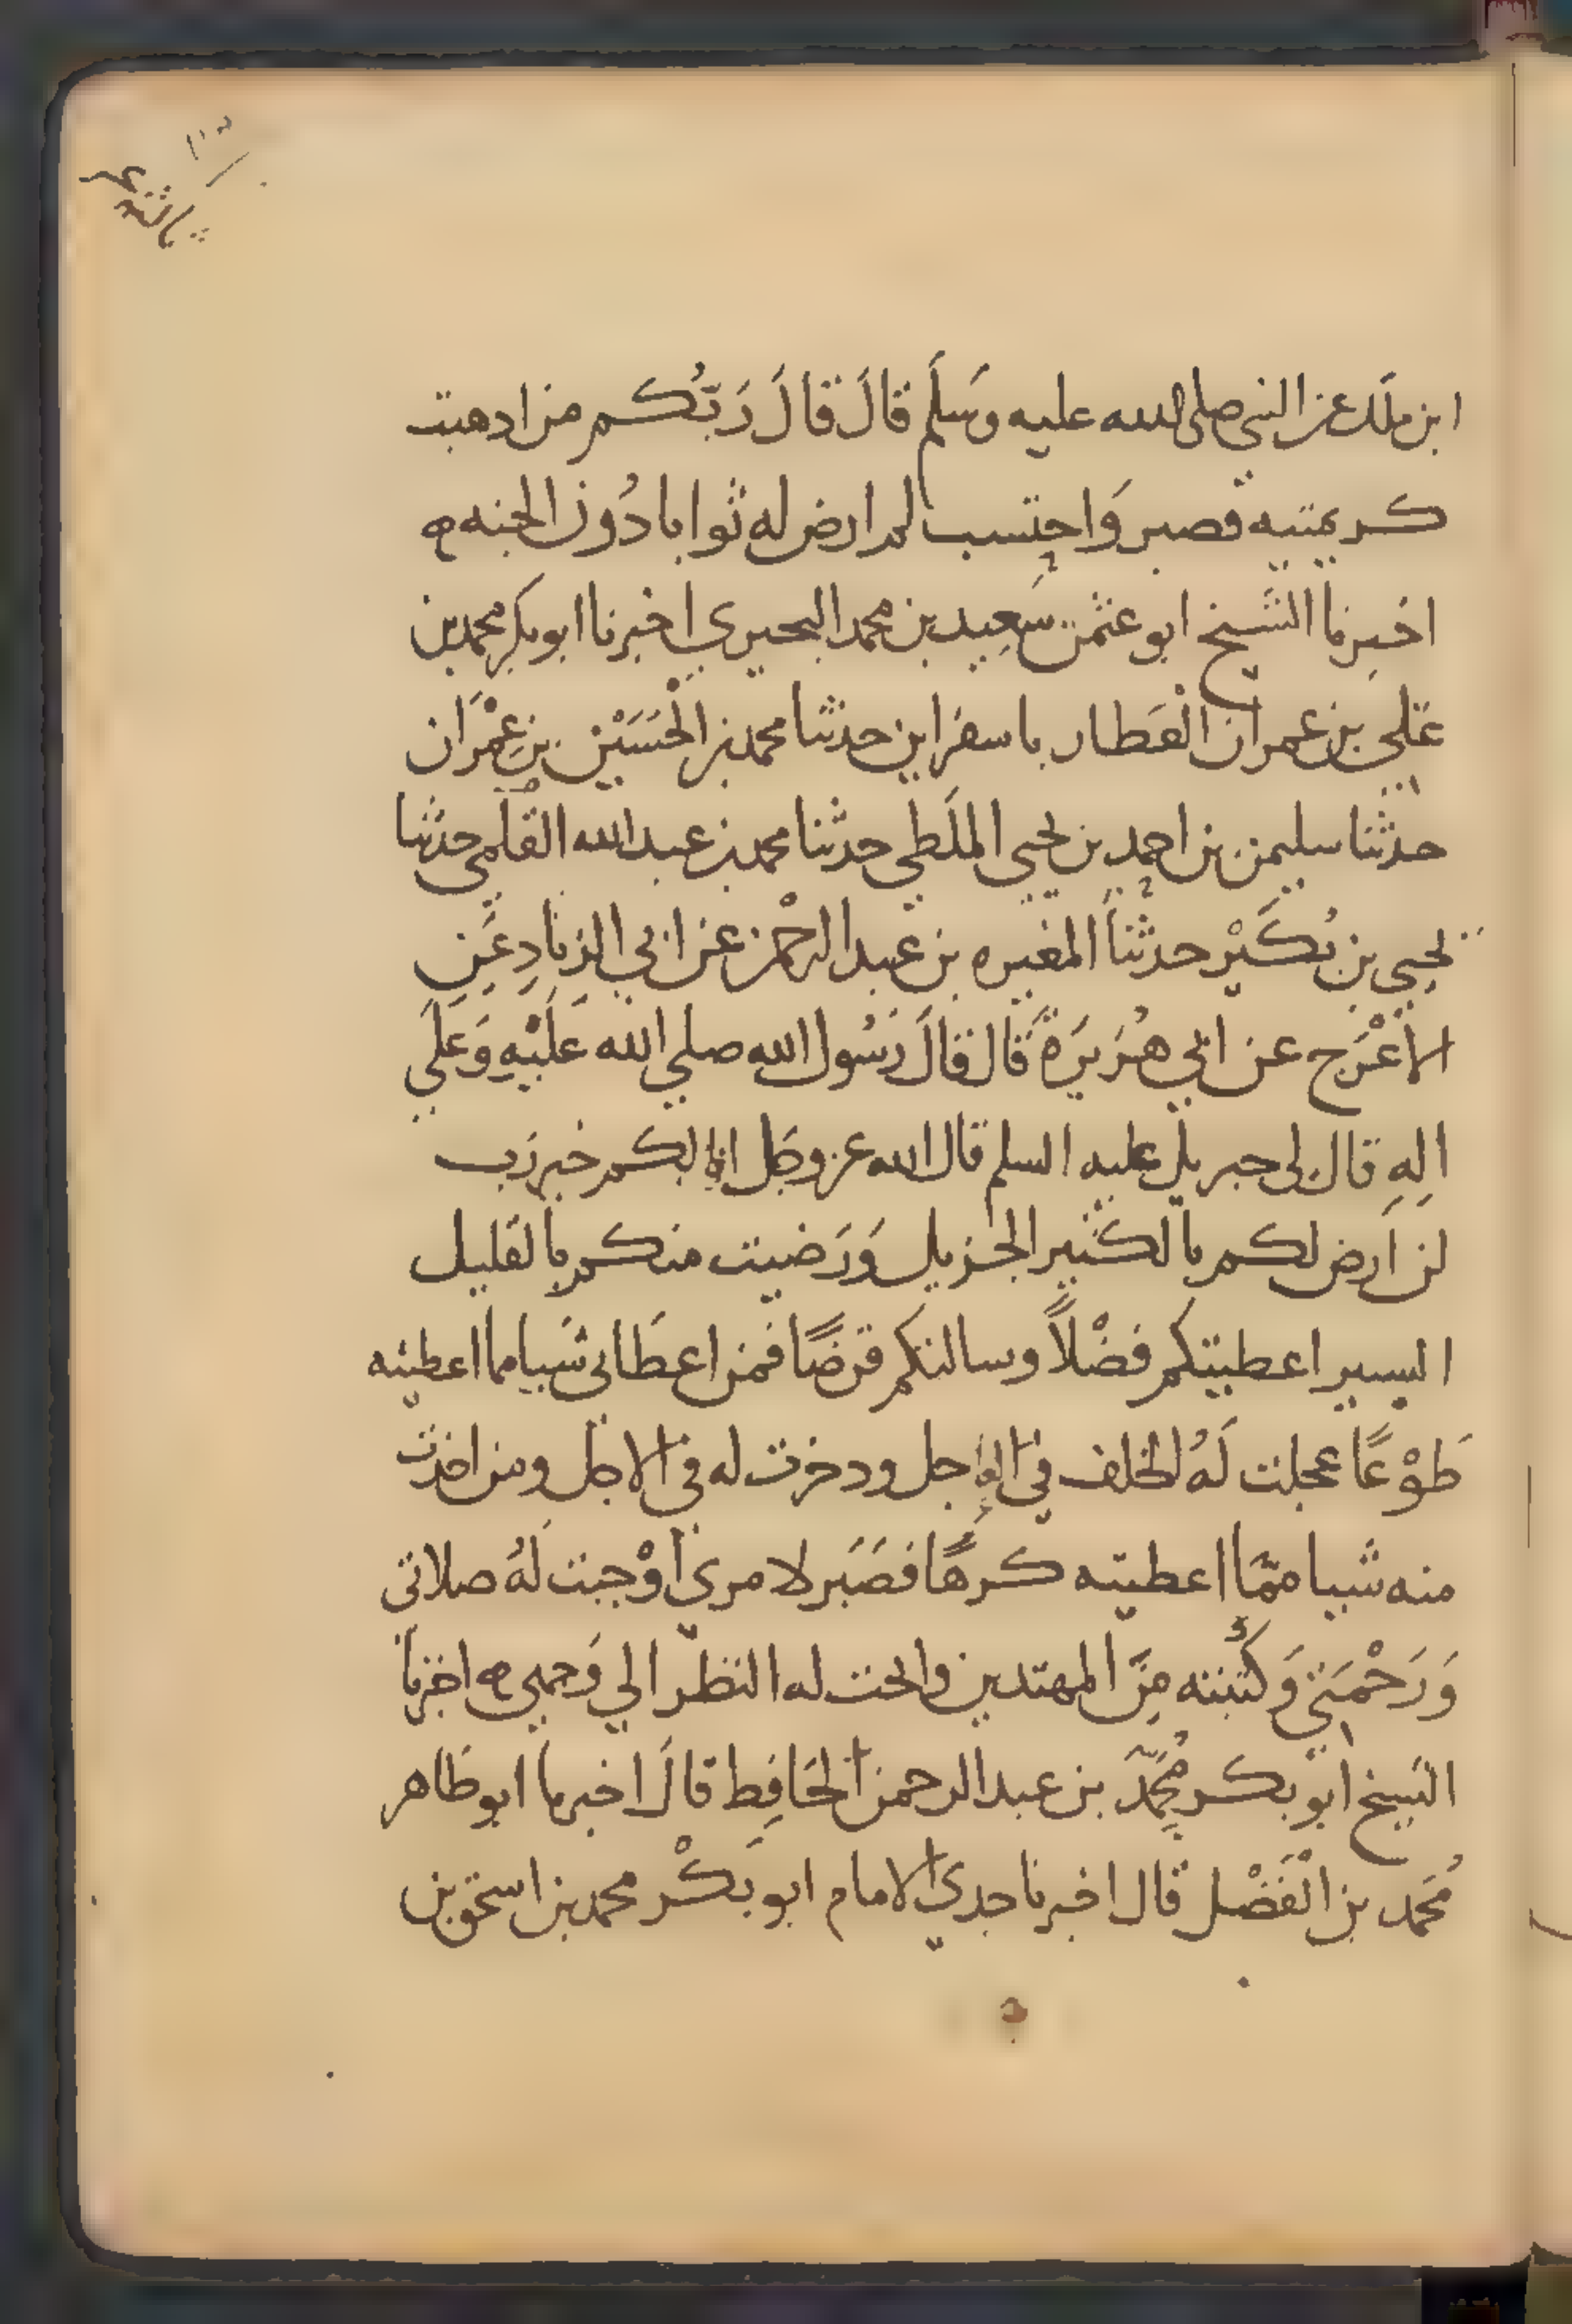 ثالثه
ابن ملك عن النبي صلى الله عليه وَسَلَم قالَ قالَ رَبّكُم من اذهبت
كريمتيه فصبر وَاحتسب لم ارض له ثوابا دُون الجنه ه
اخبرنا الشيخ ابو عثمن سَعِيد بن محمد البحيري اخبرنا ابو بكر محمد بن
علي بن عمران الْعَطار باسفراين حدثنا محمد بن الْحُسَيْن بن عِمْرَان
حدثنا سليمن بن احمد بن يحيى الملَطي حدثنا محمد بن عبد الله القلمي حدثنا
يحيى بن بُكَيْر حدثنا المغيره بن عبد الرحْمن عن ابي الزنادِ عَنِ
الأعْرَج عن ابي هُرَيرَةَ قال قالَ رَسُول الله صلي الله عَلَيْهِ وَعَلَي
الِهِ قال لى جبريل عليه السلم قال الله عز وجَل انا لكم خير رَب
لن اَرض لكم بالكثير الجزيل وَرَضيت منكم بالقليل
اليسير اعطيتكم فضْلاً وسالتكم قرضًا فمن اعطَانى شَيا مما اعطيته
طَوْعًا عجلت لَهُ الخلف في العاجل ودخرت له في الاجل ومن اخذت
منه شيا ممّا اعطيته كرهًا فصَبَر لامري أوْجبت لَهُ صلاتى
وَرَحْمَتي وَكتبته مِنَ المهتدين وابحت له النظر الي وَجهي ه اخبرنا
الشيخ ابو بكر مُحَمَّد بن عبد الرحمن الحَافِظ قالَ اخبرنا ابو طَاهر
مُحَمد بن الْفَضْل قال اخبرنا جدي الامام ابو بَكْر محمد بن اسحق بن